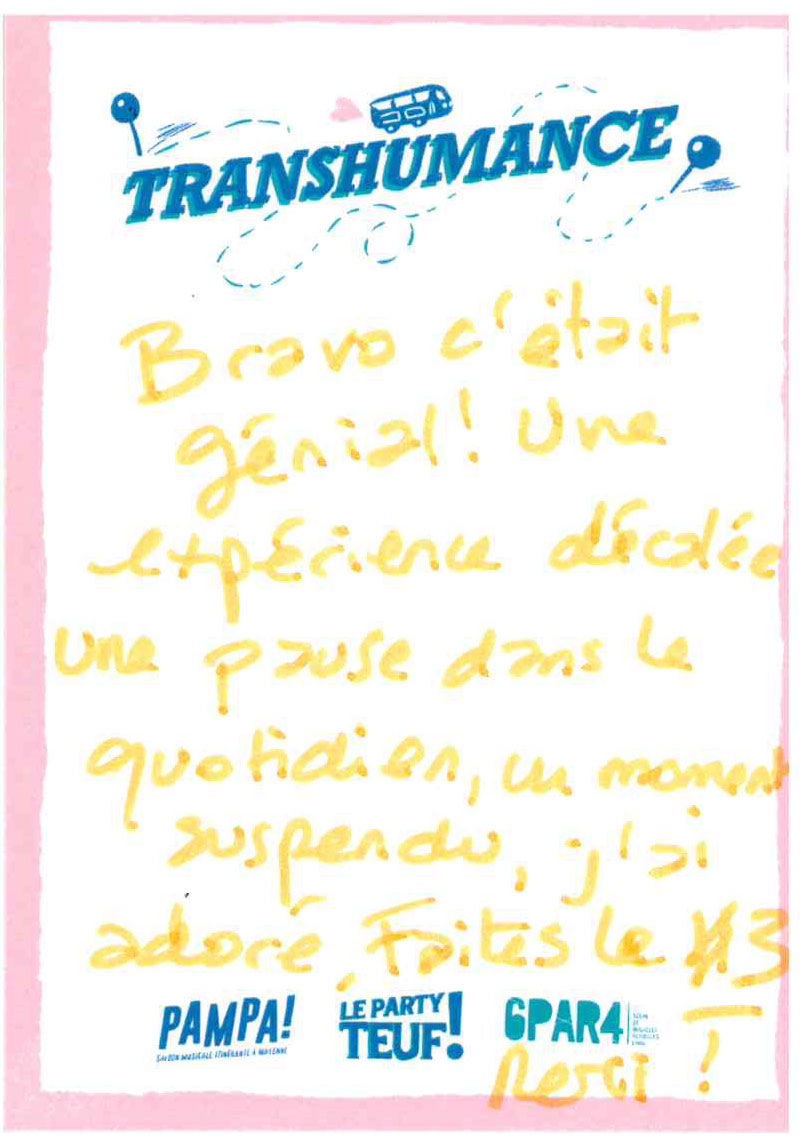 TRANSHUMANCE
Bravo c'était
génial! Une
expérience décalée
une pause dans le
quotidien, un moment
suspendu, j'ai
adoré, Faites le #3
!
PAMPA!
SAISON MUSICALE ITINÉRANTE À MAYENNE
LE PARTY
TEUF!
6PAR4
Merci